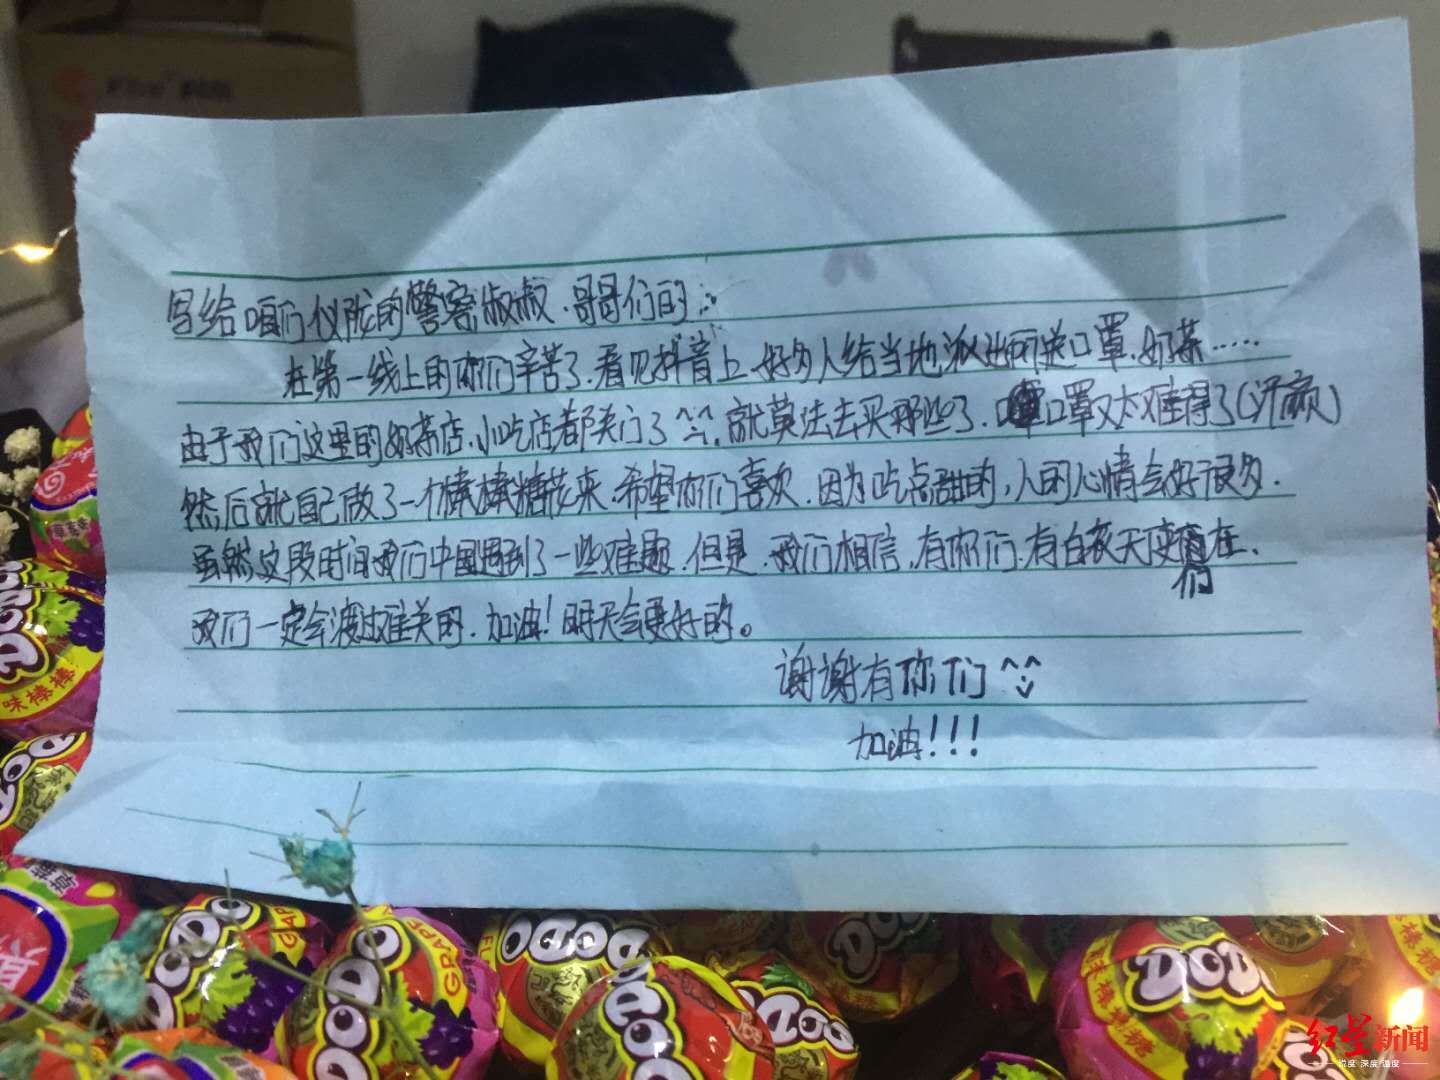 写给咱们仪陇的警察叔叔、哥哥们的:
在第一线上的你们辛苦了.看见抖音上好多人给当地派出所送口罩.奶茶……
由于我们这里的奶茶店.小吃店都关门了^^.就莫法去买那些了.口罩又太难得了(汗颜)
然后就自己做了一个棒棒糖花来.希望你们喜欢.因为吃点甜的,人的心情会好很多.
虽然这段时间我们中国遇到了一些难题.但是.我们相信,有你们.有白衣天使们在.
我们一定会渡过难关的.加油!明天会更好的。
谢谢有你们^^
加油!!!
DODO
DODO
味棒棒
DODO
DODO
GRAPE
DODO
GRAPE
DODO
DODO
DODO
DODO
棒棒糖
红星新闻
锐度 深度 温度